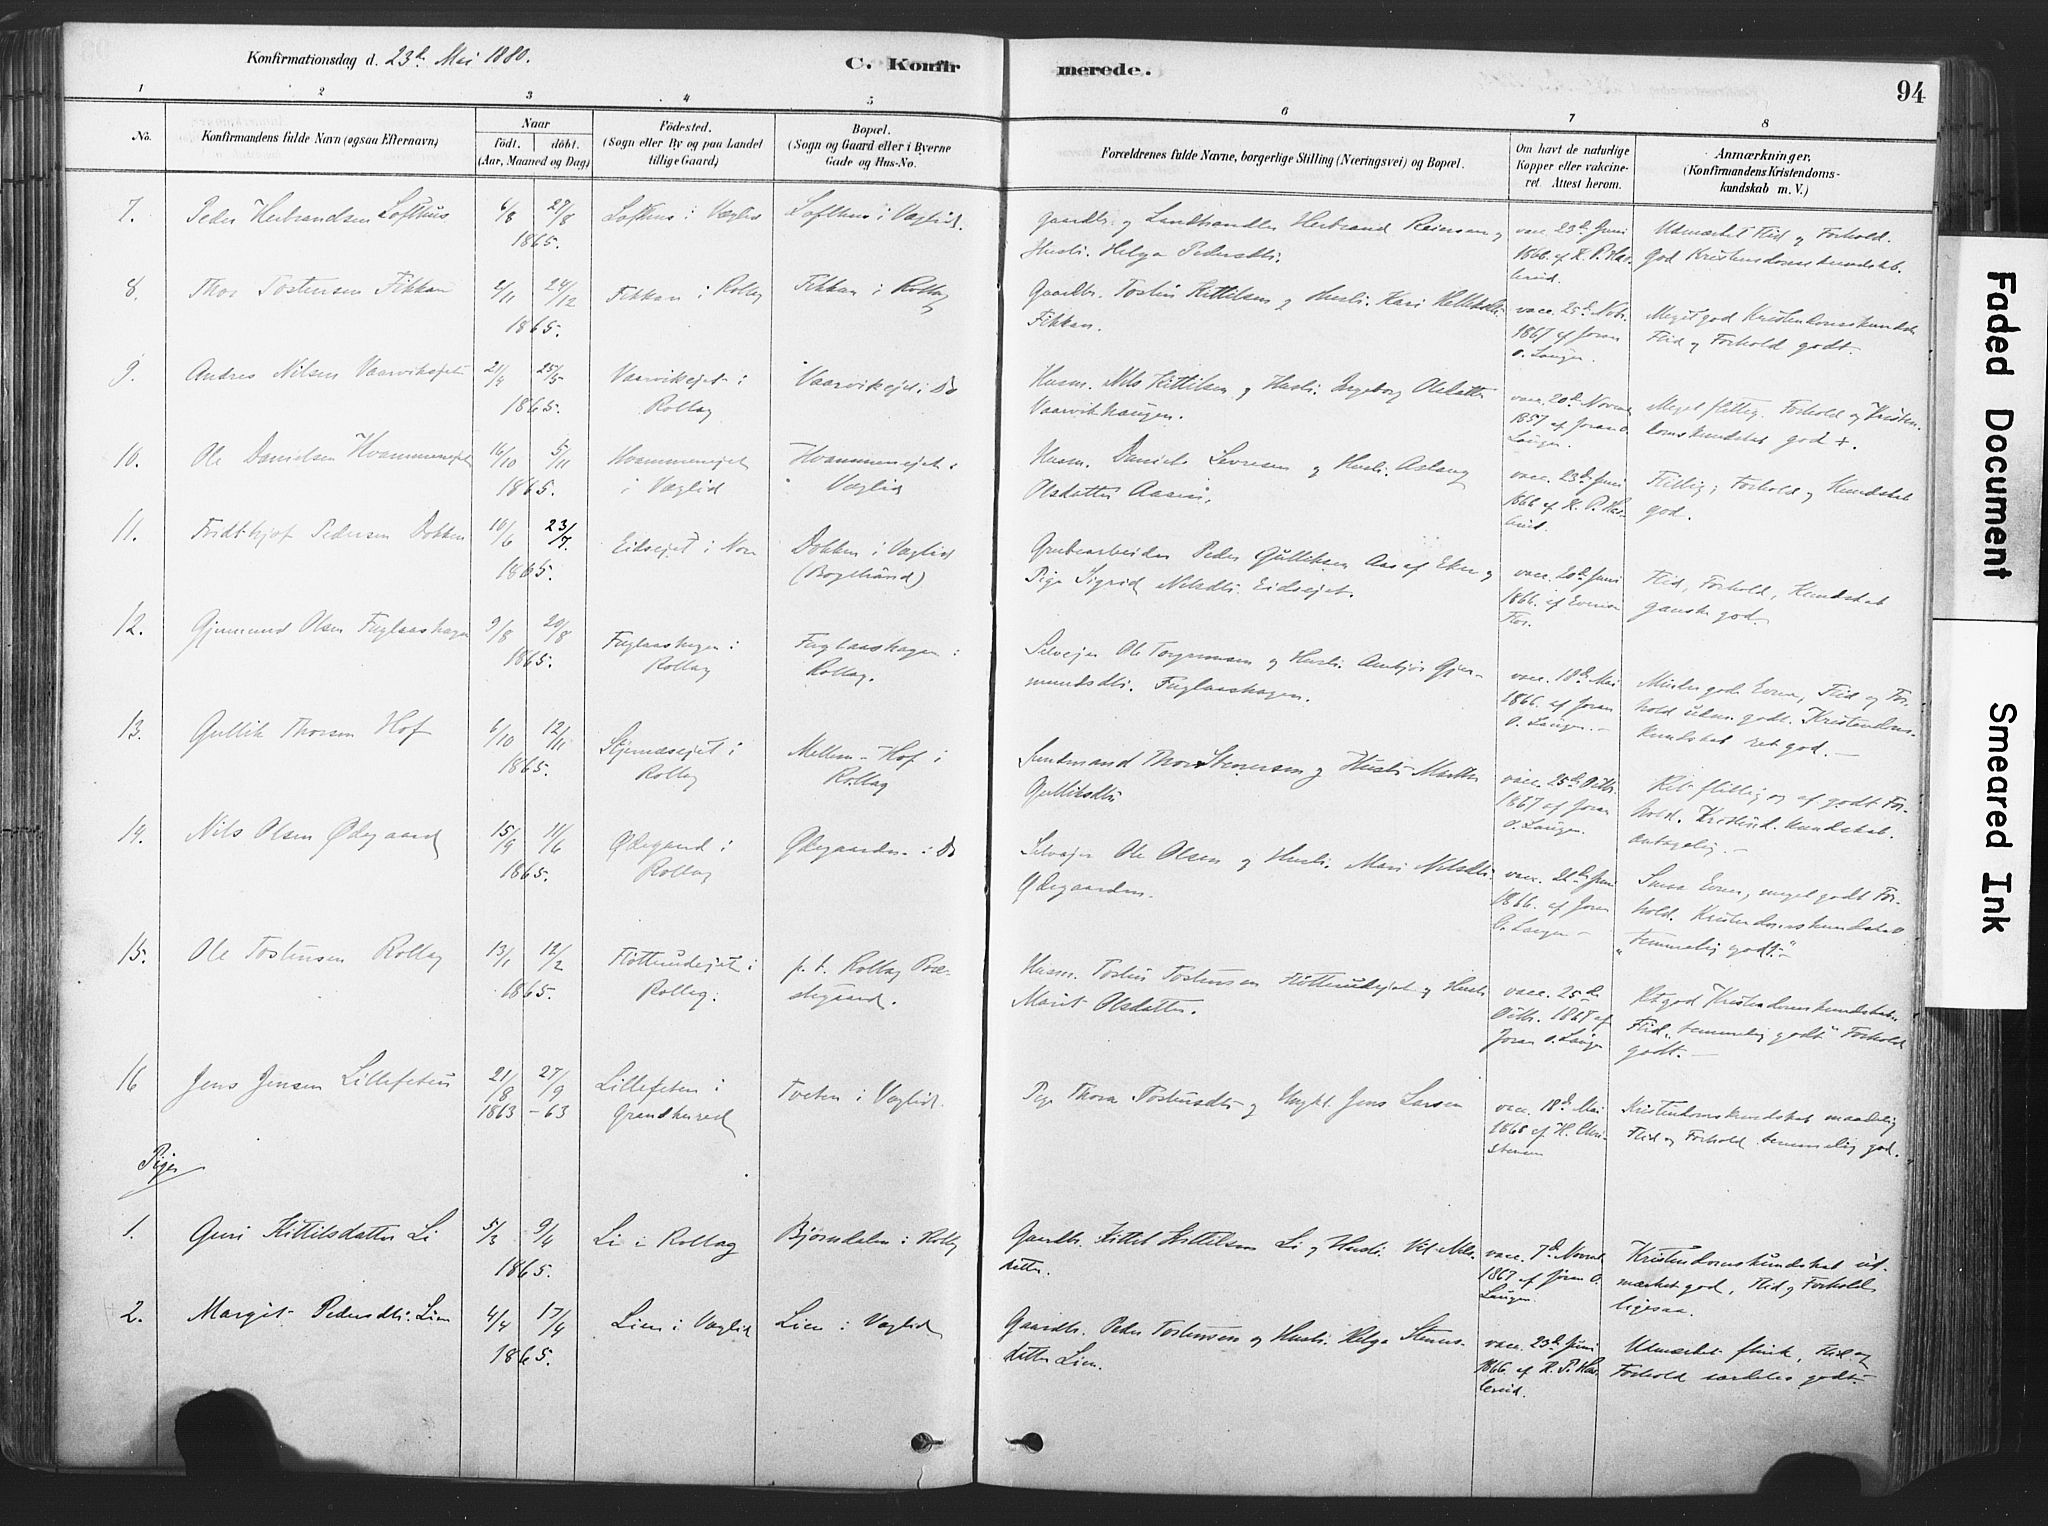 Konfirmationsdag d. 23de Mai 1880.
C. Konfirmerede.
94
1 2 3 4 5 6 7 8
No.
Konfirmandens fulde Navn (ogsaa Efternavn)
Naar
födt. döbt.
(Aar, Maaned og Dag)
Födested.
(Sogn eller By og paa Landet
tillige Gaard)
Bopæl.
(Sogn og Gaard eller i Byerne
Gade og Hus-No.
Forældrenes fulde Navne, borgerlige Stilling (Næringsvei) og Bopæl.
Om havt de naturlige
Kopper eller vakcine-
ret. Attest herom.
Anmærkninger.
(Konfirmandens Kristendoms-
kundskab m. V.)
7. Peder Herbrandsen Lofthus 6/8 27/8 Lofthus i Væglid Lofthus i Væglid.
1865.
Gaardbr. og Landhandler Herbrand Reiersen og
Hustr. Helga Pedersdtr.
vacc. 23de Juni
1866 af K. P. Has-
lerud.
Udmærket Flid og Forhold.
God Kristendomskundskab.
8. Thor Tostensen Fikkan 2/11 24/12 Fikkan i Rollag Fikkan i Rollag
1865.
Gaardbr. Tosten Kittilsen og Hustr. Kari
Fikkan.
vacc. 25de Nobr.
1867 af Joran
O. Laugen.
Meget god Kristendomskundsk.
Flid og Forhold godt.
9. Andres Nilsen Vaarvikejet 21/4 25/5 Vaarvikejet i Vaarvikejet i Do
1865. Rollag
Husm. Nils Kittilsen og Hustr. Ingeborg Olsdatter
Vaarvikhaugen.
vacc. 20de Novem.
1867 af Joran O.
Laugen.
Meget flittig. Forhold og Kristen-
domskundskab god +.
10. Ole Danielsen Hvammenejet 16/10 5/11 Hvammenejet Hvammenejet i
1865. i Væglid Væglid
Husm. Daniel Severesen og Hustr. Aslaug
Olsdatter Aasen.
vacc. 23de Juni
1866 af K. P. Has-
lerud.
Flittig; Forhold og Kundskab
god.
11. Fridthjof Pedersen Dokken 10/6 23/7. Eidsejet i Nore Dokken i Væglid
1865. (Bogstrand)
Grubearbeider Peder Gulliksen Aas af Eker og
Pige Sigrid Nilsdtr. Eidsejet.
vacc. 20de Juni
1866. af Even
Flid, Forhold, Kundskab
ganske god.
12. Gjermund Olsen Fuglaashagen 9/8 20/8 Fuglaashagen i Fuglaashagen i
1865. Rollag Rollag.
Selvejer Ole Torgrimsen og Hustr. Anbjør Gjer-
mundsdtr. Fuglaashagen.
vacc. 18de Mai
1866. af Joran
O. Laugen. —
Mindre gode Evner, Flid og For-
hold udm. godt. Kristendoms-
kundskab ret god. —
13. Gullik Thorsen Hof 6/10 12/11 Stjernæsejet i Mellem-Hof i
1865. Rollag Rollag
Sundmand Thor Stenersen og Hustr. Marthe
Gulliksdtr.
vacc. 25de Octbr.
1867 af Joran
O. Laugen.
Ret flittig og af godt For-
hold. Kristend. kundskab.
antagelig. —
14. Nils Olsen Ødegaard 15/9 11/6 Ødegaard i Ødegaarden i Do
1865. Rollag
Selvejer Ole Olsen og Hustr. Mari Nilsdtr.
Ødegaarden.
vacc. 22de Juni
1866. af Joran
O. Laugen —
Smaa Evner, meget godt For-
hold. Kristendomskundskab
"temmelig godt" —
15. Ole Tostensen Rollag 13/1 12/2 Fløtterudejet i p. t. Rollag Præ-
1865. Rollag. stegaard.
Husm. Tosten Tostensen Fløtterudejet og Hustr.
Marit Olsdatter.
vacc. 25de
Octbr. 1867 af
Joran O. Laugen
Ret god Kristendomskundskab.
Flid. temmelig godt Forhold
godt. —
16 Jens Jensen Lillefeten 21/8 27/9 Lillefeten i Tveten i Væglid.
1863 -63 Granshered
Pige Thora Tostensdtr. og Ungk. Jens Larsen
vacc. 18de Mai
1868 af H. Chri-
stensen
Kristendomskundskab maadelig
Flid og Forhold temmelig god.
Piger
1. Guri Kittilsdatter Li 5/3 9/4 Li i Rollag Bjørndalen i Rollag
1865.
Gaardbr. Kittil Kittilsen Li og Hustr. Nils-
datter.
vacc. 7de Novem.
1867 af Joran O.
Laugen.
Kristendomskundskab ud-
mærket god, Flid og Forhold
ligesaa.
2. Margit Pedersdtr. Lien 4/4 17/4 Lien i Væglid Lien i Væglid
1865.
Gaardbr. Peder Tostensen og Hustr. Helga Steners-
datter Lien.
vacc. 23de Juni
1866 af K. P. Has-
lerud.
Udmærket flink, Flid og
Forhold særdeles godt.
Faded Document
Smeared Ink